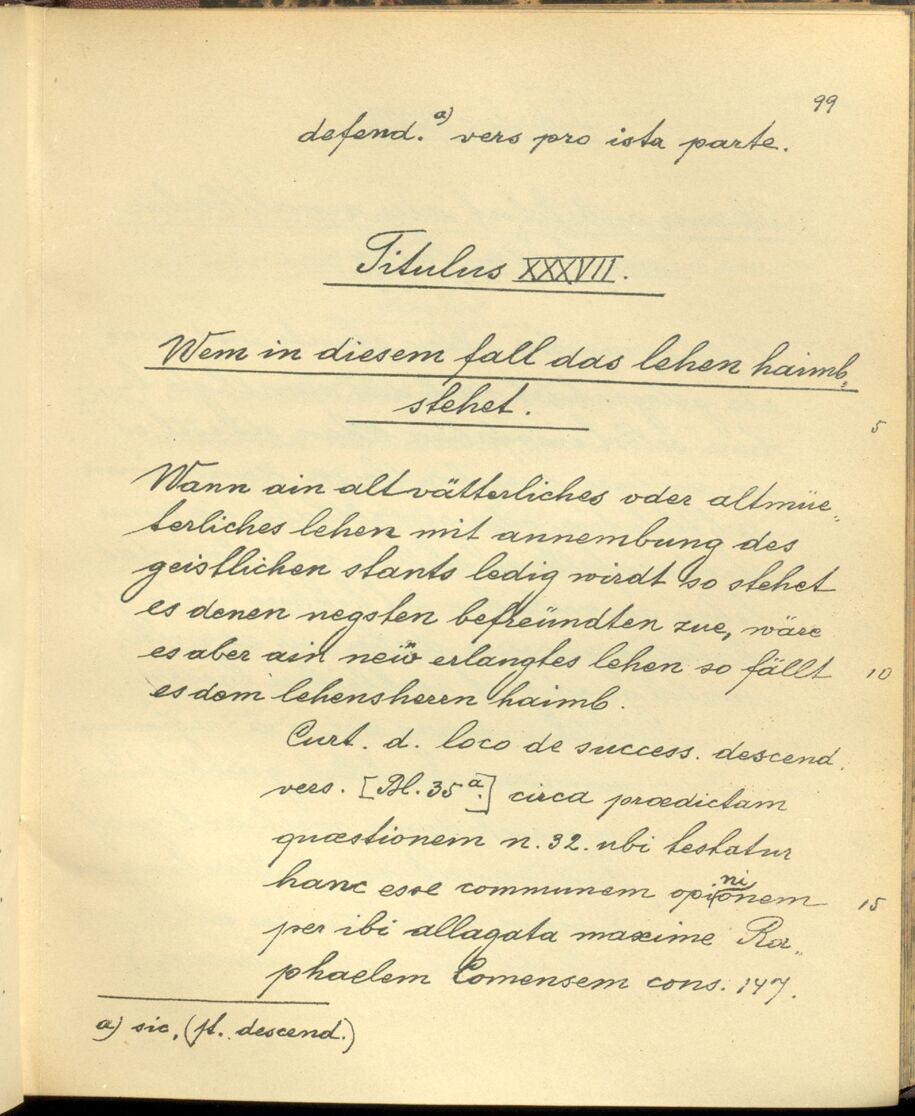 99
defend.a) vers pro ista parte.
Titulus XXXVII.
Wem in diesem fall das lehen haimb„
stehet.
5
Wann ain altvätterliches oder altmüe„
terliches lehen mit annembung des
geistlichen stants ledig wirdt so stehet
es denen negsten befreündten zue, wäre
es aber ain neü erlangtes lehen so fällt
10
es dem lehensherrn haimb.
Curt. d. loco de success. descend.
vers. [Bl. 35a.] circa prædictam
quæstionem n. 32. ubi testatur
hanc esse communem opinionem
15
per ibi allagata maxime Ra„
phaelem Comensem cons. 147.
a) sic, (st. descend.)